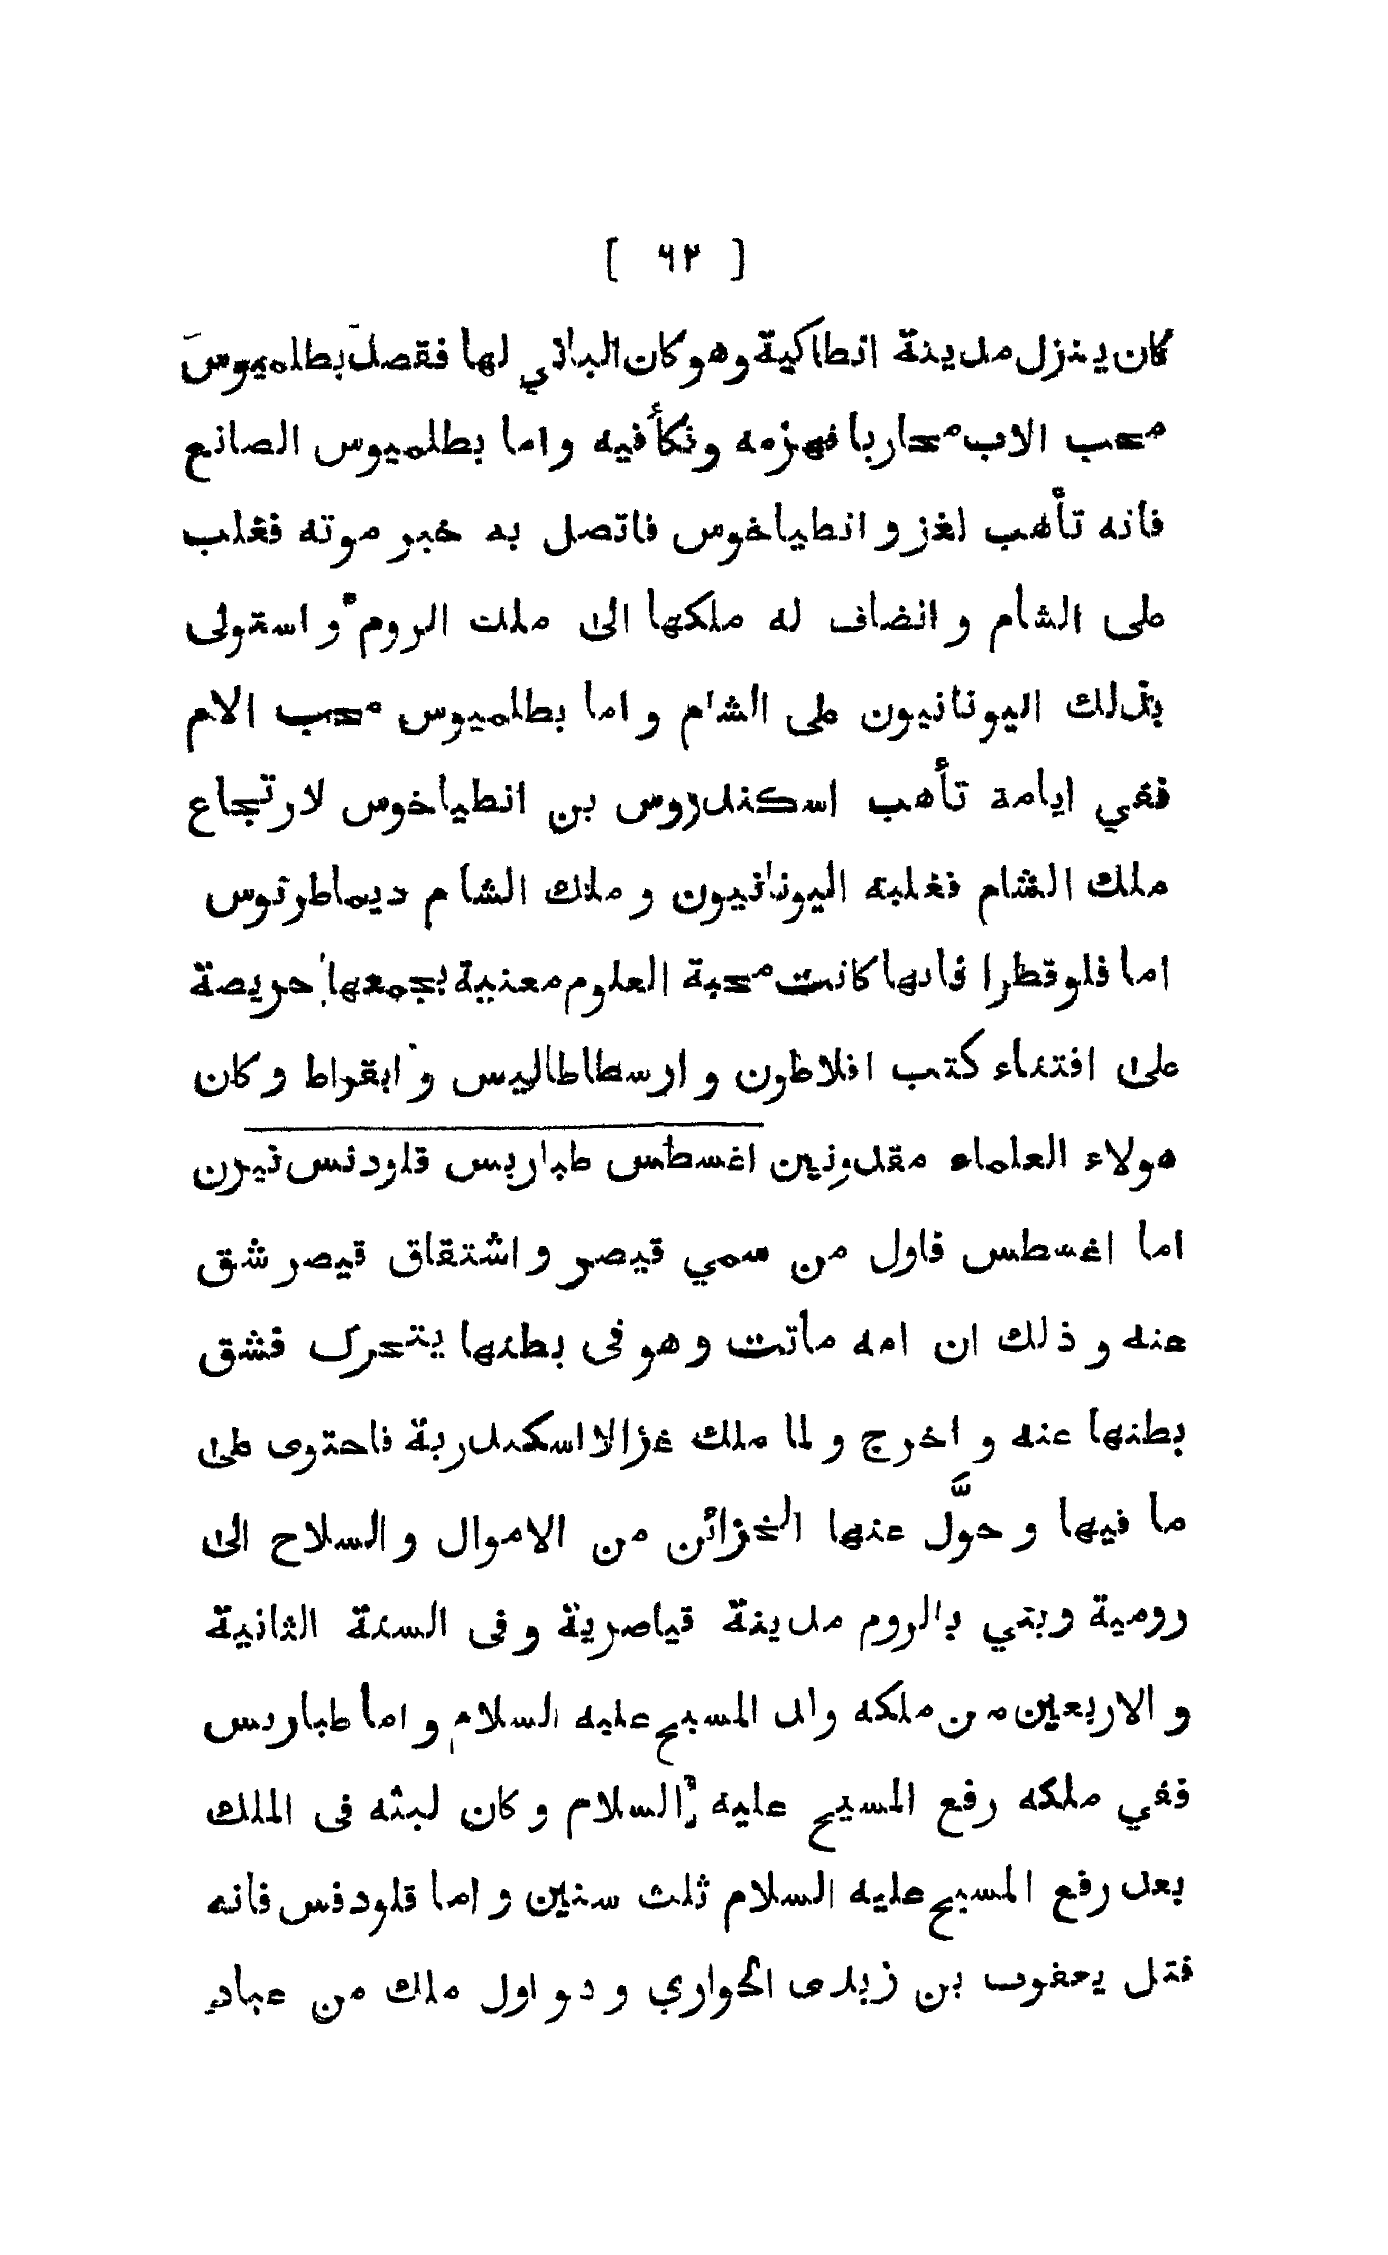 [ ٦٢ ]
كان ينزل مدينة انطاكية وهو كان الباني لها فقصد بطلميوس
محب الاب محاربا فهزمه ونكأ فيه واما بطلميوس الصانع
فانه تأهب لغزو انطياخوس فاتصل به خبر موته فغلب
على الشأم وانضاف له ملكها الى ملك الروم واستولى
بذلك اليونانيون على الشام واما بطلميوس محب الام
ففي ايامة تأهب اسكندروس بن انطياخوس لارتجاع
ملك الشام فغلبته اليونانيون و ملك الشام ديماطرئوس
اما فلوقطرا فانها كانت محبة العلوم معنية بجمعها حريصة
على افتناء كتب افلاطون و ارسطاطاليس و ابقراط و كان
هولاء العلماء مقدونيين اغسطس طباريس قلودئس نيرن
اما اغسطس فاول من سمي قيصر و اشتقاق قيصر شق
عنه و ذلك ان امه ماتت و هو فى بطنها يتحرك فشق
بطنها عنه و اخرج و لما ملك غزا الاسكندرية فاحتوى على
ما فيها و حوَّل عنها الخزائن من الاموال و السلاح الى
رومية وبتي بالروم مدينة قياصرية و فى السنة الثانية
و الاربعين من ملكه ولد المسيح عليه السلام و اما طباريس
ففي ملكه رفع المسيح عليه السلام و كان لبثه فى الملك
بعد رفع المسيح عليه السلام ثلث سنين و اما قلودفس فانه
قتل يعقوب بن زبدى الحواري و دو اول ملك من عباد